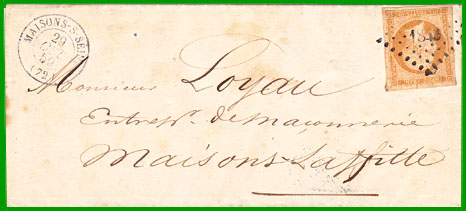 MAISONS-S-SEINE
29
(72)
Monsieur Loyau
Entrepr. de maçonnerie
Maisons Laffitte